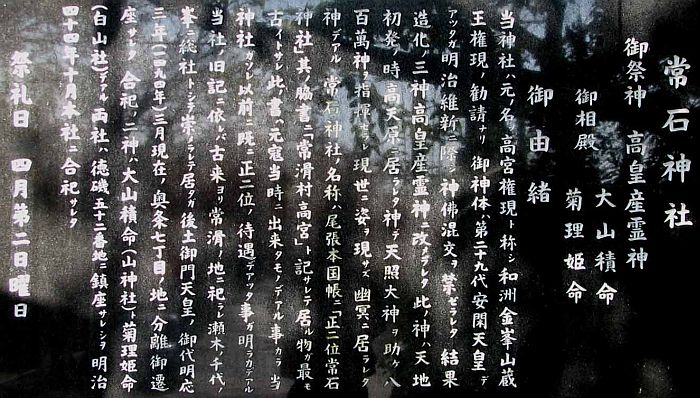 常石神社
御祭神　高皇産霊神
御相殿　大山積命
菊理姫命
御由緒
当神社ハ元名、高宮権現ト称シ和洲金峯山蔵
王権現ノ勧請ナリ　御神体ハ第二十九代安閑天皇デ
アッタガ明治維新ニ際シ神佛混交ヲ禁ゼラレタ結果
造化ノ三神高皇産霊神ニ改メラレタ此ノ神ハ天地
初発ノ時高天原ニ居ラレタ神デ天照大神ヲ助ケ八
百萬神ヲ指揮サレ現世ニ姿ヲ現サズ幽冥ニ居ラレタ
神デアル　常石神社ノ名称ハ尾張本国帳ニ「正二位常石
神社」其ノ脇書ニ「常滑村高宮」ト記サレテ居ル物ガ最モ
古イトサレ此ノ書ハ元寇当時ニ出来タモノデアル事カラ当
神社ガソレ以前ニ既ニ正二位ノ待遇デアッタ事ガ明ラカデアル
当社ノ旧記ニ依レバ古来ヨリ常滑ノ地ニ祀ラレ瀬木ノ千代ノ
峯ニ総社トシテ崇メラレテ居タガ後土御門天皇ノ御代明応
三年(一四九四年)三月現在ノ奥条七丁目ノ地ニ分離御遷
座サレタ　合祀ノ二神ハ大山積命(山神社)ト菊理姫命
(白山社)デアル両社ハ徳磯五十二番地ニ鎮座サレシヲ明治
四十四年十月本社ニ合祀サレタ
祭礼日　四月第二日曜日